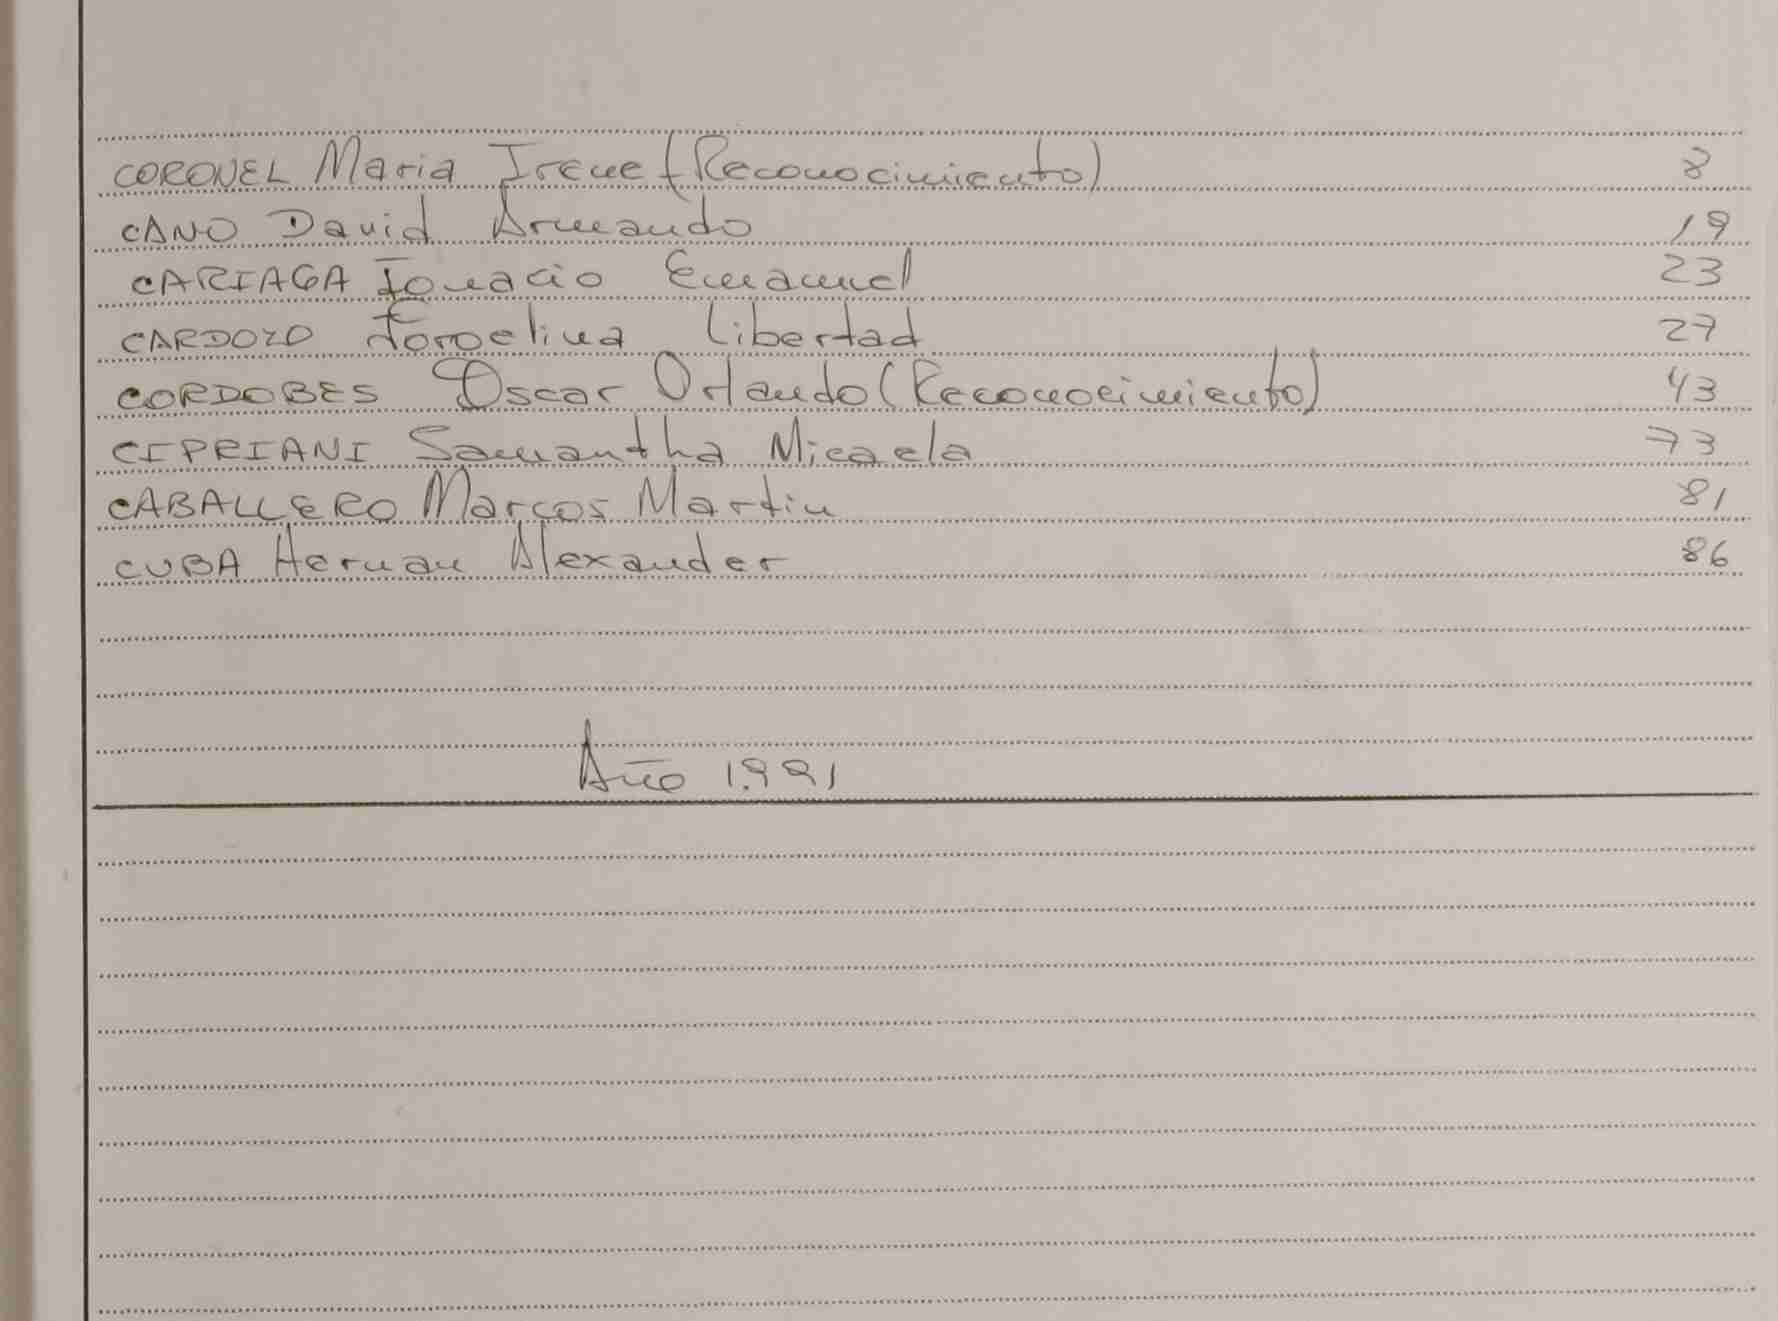 CORONEL Maria Irene (Reconocimiento) 8
CANO David Armando 19
CARIAGA Ignacio Emanuel 23
CARDOZO Libertad 27
CORDOBES Oscar Orlando (Reconocimiento) 43
CIPRIANI Samantha Micaela 73
CABALLERO Marcos Martin 81
CUBA Hernan Alexander 86
Año 1.991